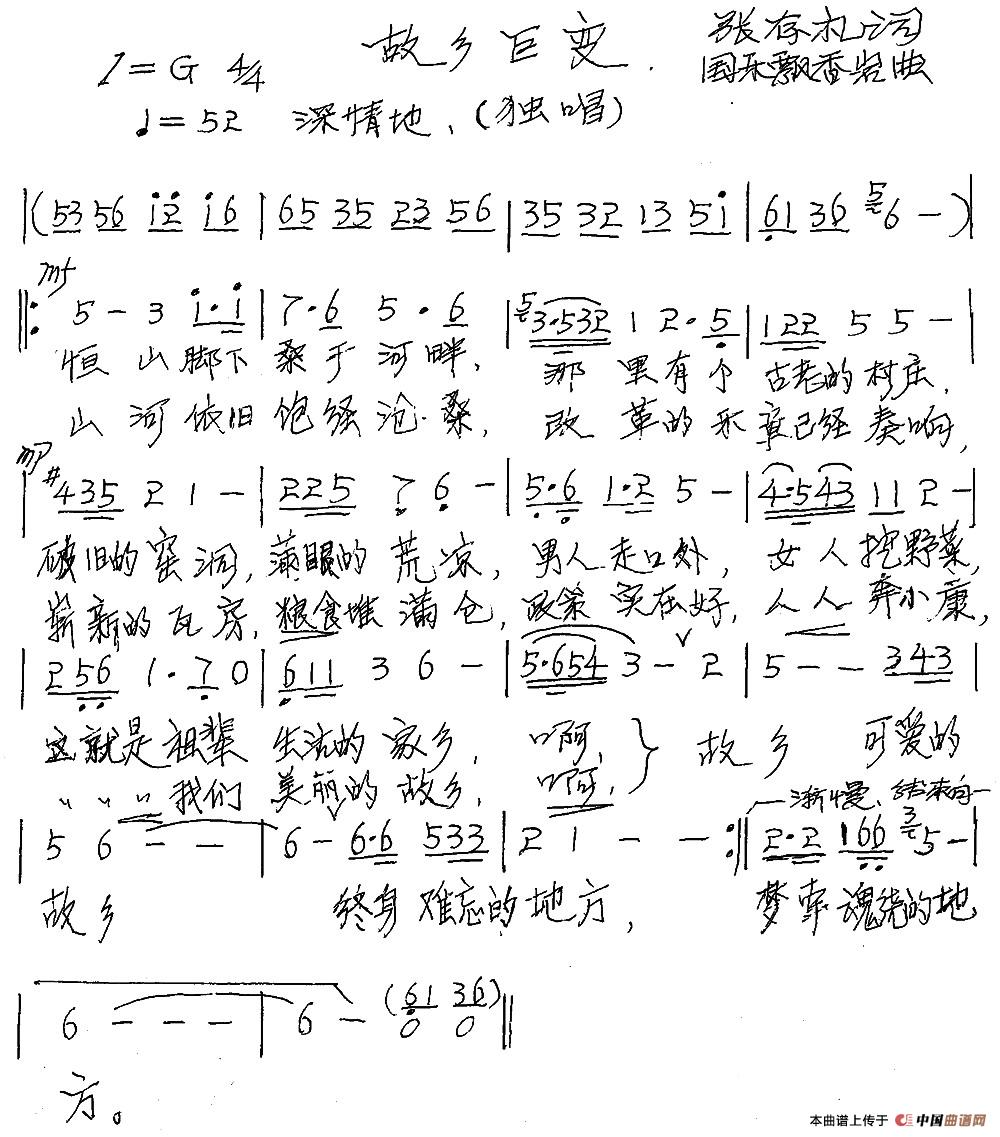 故乡巨变
张存礼词
国乐飘香岩曲
1=G 4/4
♩=52 深情地、(独唱)
|(53 56 i2 i6 | 65 35 23 56 | 35 32 13 5i | 61 36 5 6 - )|
mf
||: 5 - 3 i·i | 7·6 5·6 | 5 3·532 1 2·5 | 122 5 5 - |
恒山脚下 桑干河畔, 那里有个 古老的村庄,
山河依旧 饱经沧桑, 改革的乐章已经奏响,
mp
| #435 2 1 - | 225 7 6 - | 5·6 1·2 5 - | 4·543 11 2 - |
破旧的窑洞, 满眼的荒凉, 男人走口外, 女人挖野菜,
崭新的瓦房, 粮食堆满仓, 政策实在好, 人人奔小康,
| 256 1·7 0 | 611 3 6 - | 5·654 3 - 2 | 5 - - 343 |
这就是祖辈 生活的家乡, 啊, } 故乡 可爱的
" " " 我们 美丽的故乡, 啊,
渐慢、结束句
| 5 6 - - | 6 - 6·6 533 | 2 1 - - :|| 2·2 166 3 5 - |
故乡 终身难忘的地方, 梦牵魂绕的地
| 6 - - - | 6 - (61 36) ||
0 0
方。
本曲谱上传于 中国曲谱网